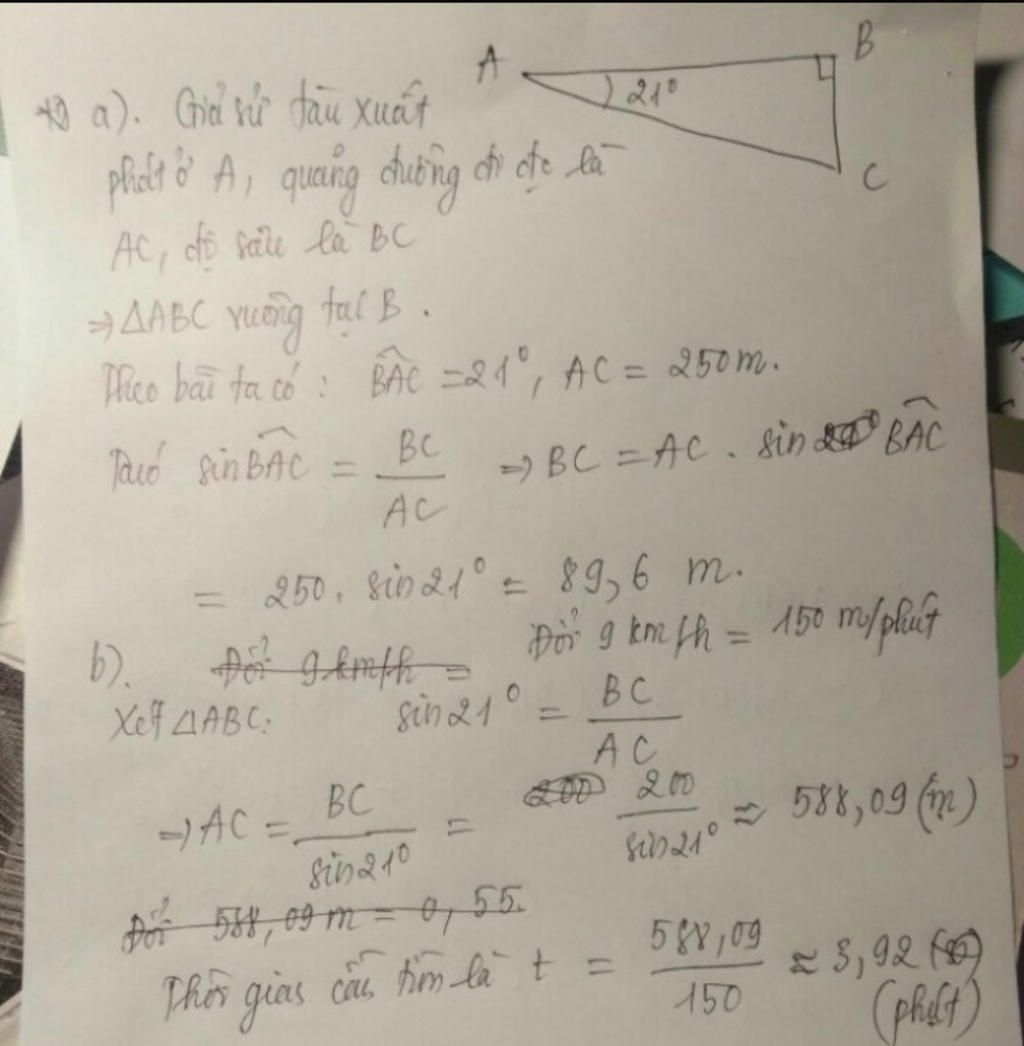 A B
21°
C
a). Giả sử tàu xuất
phát ở A, quãng đường đi đc là
AC, độ sâu là BC
⇒ ΔABC vuông tại B.
Theo bài ta có: \widehat{BAC} = 21°, AC = 250m.
Ta có sin \widehat{BAC} = BC/AC ⇒ BC = AC . sin \widehat{BAC}
= 250. sin 21° = 89,6 m.
b). Đổi 9 km/h = Đổi 9 km/h = 150 m/phút
Xét ΔABC: sin 21° = BC/AC
⇒ AC = BC/sin21° = 200 200/sin21° ≈ 588,09 (m)
Đổi 588,09 m = 0,55.
Thời gian cần tìm là t = 588,09/150 ≈ 3,92
(phút)